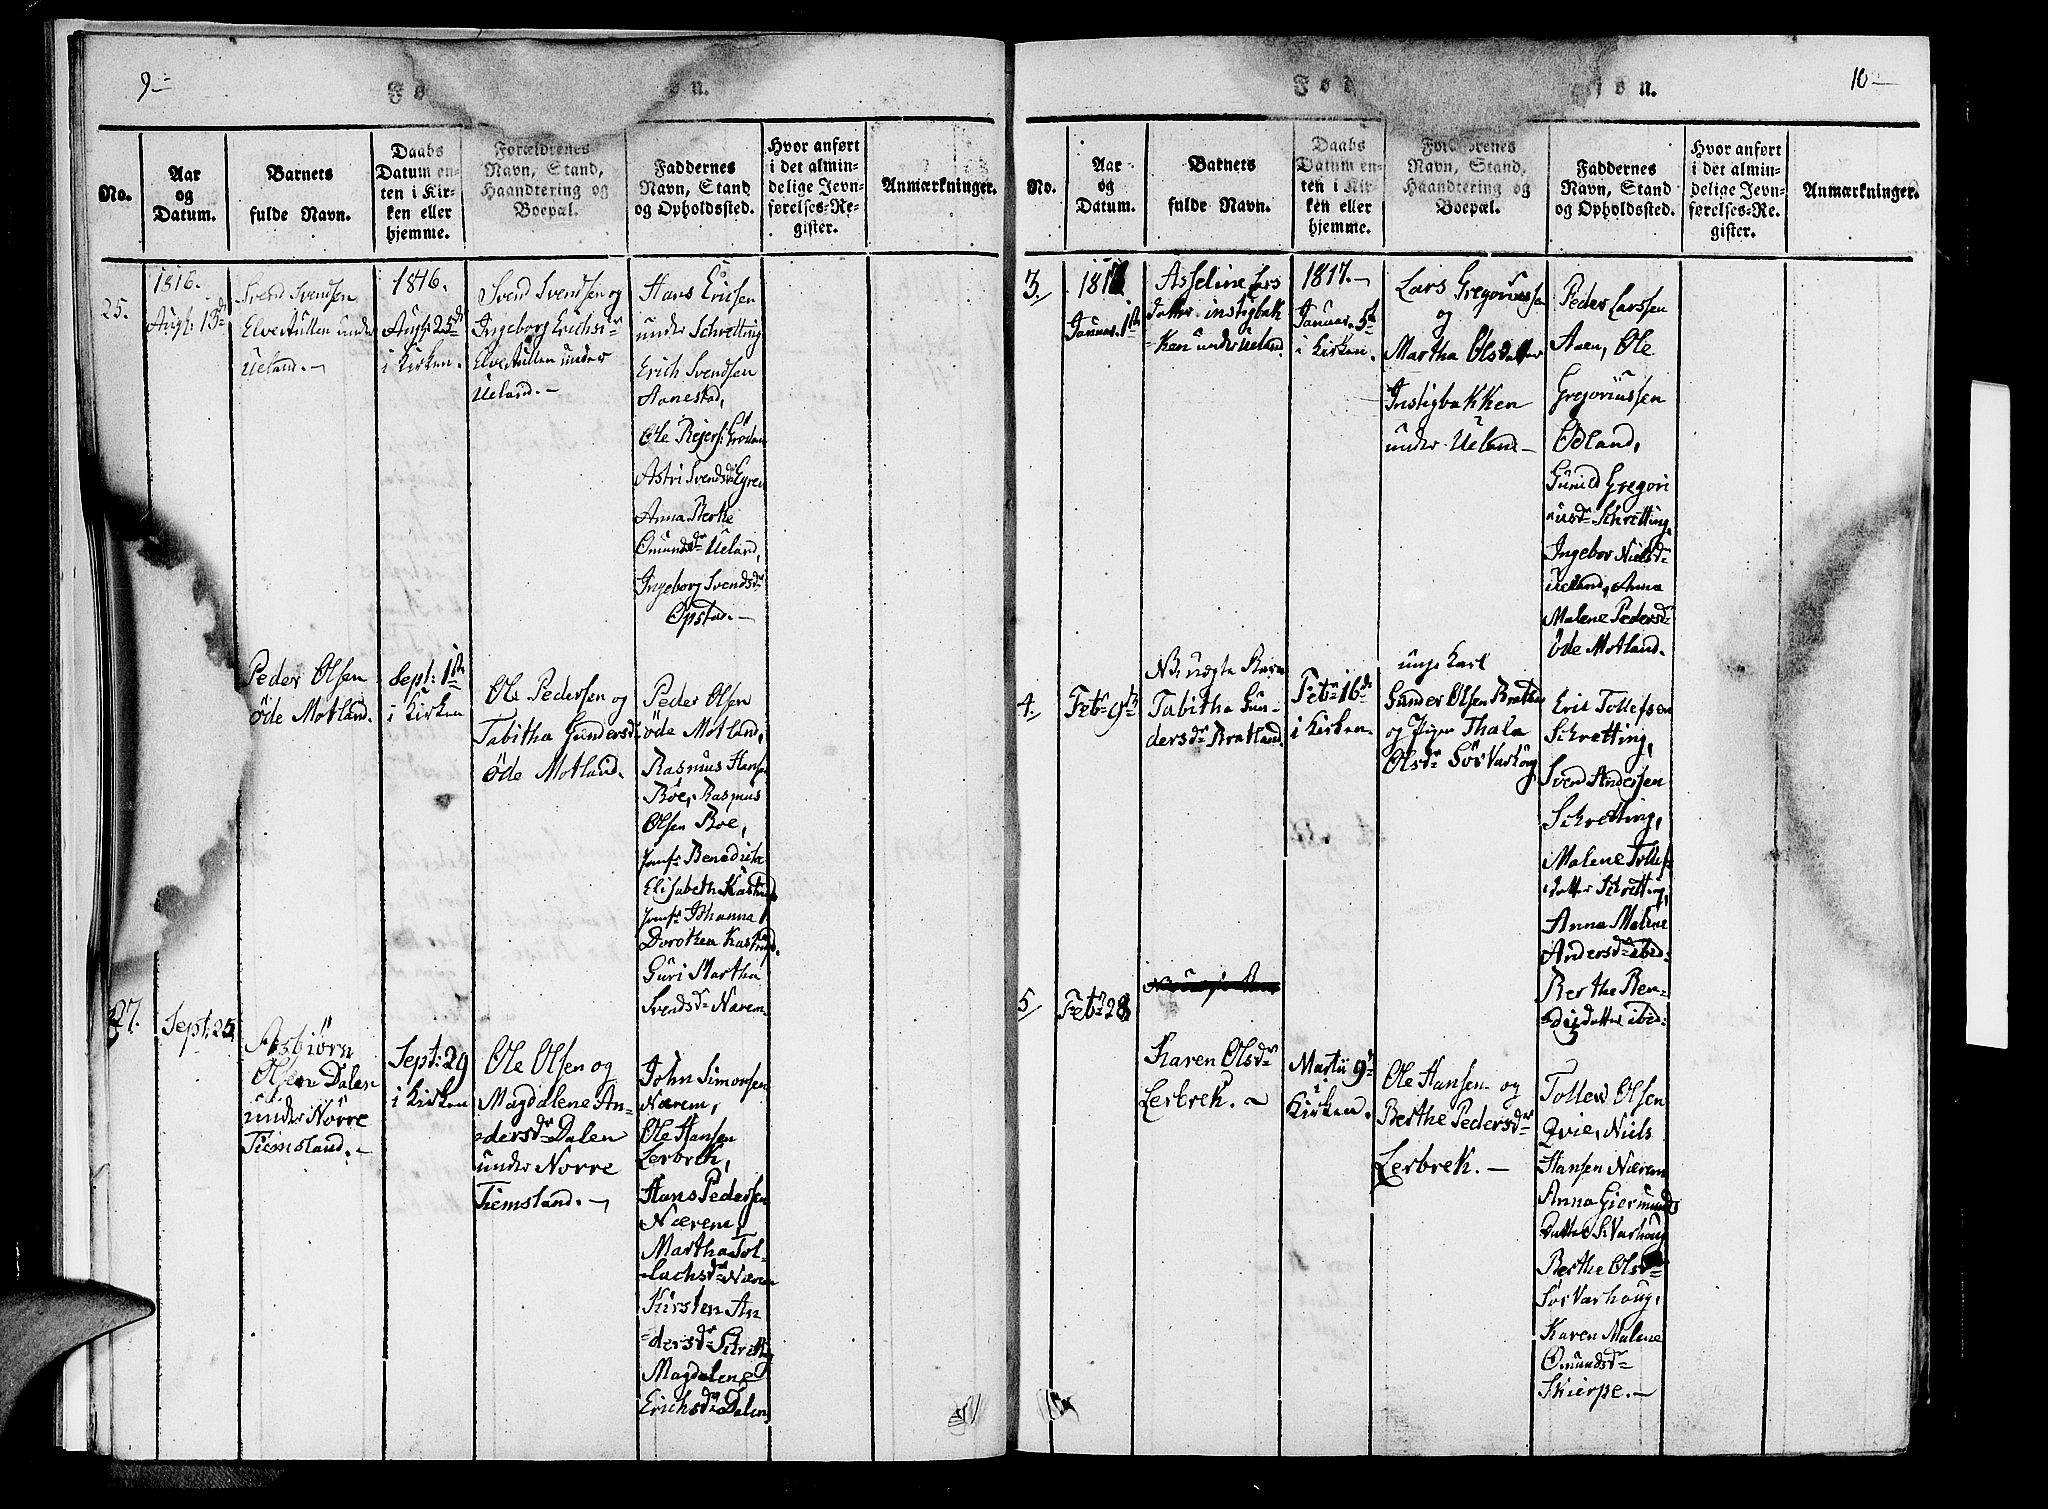 9
No.
Aar
og
Datum.
Barnets
fulde Navn.
Daabs
Datum en-
ten i Kir-
ken eller
hjemme.
Forældrenes
Navn, Stand,
Haandtering og
Boepæl.
Faddernes
Navn, Stand
og Opholdssted.
Hvor anført
i det almin-
delige Jevn-
førelses-Re-
gister.
Anmærkninger.
25.
1816.
Augs: 13d
Svend Svendsen
Elvestullen under
Ueland.
1816.
Augs: 25d
i Kirken.
Svend Svendsen og
Ingeborg Erichsdr
Elvestullen under
Ueland.
Hans Ericsen
under Schretting
Erich Svendsen
Aanestad,
Ole Rejers:
Astri Svendsdr Egren
Anna Berte
Omundsdr Ueland,
Ingeborg Svendsdr
Opstad.
Peder Olsen
öde Motland.
Sept: 1ste
i Kirken
Ole Pedersen og
Tabitha Gundersd:
öde Motland.
Peder Olsen
öde Motland,
Rasmus Hans:
Böe, Rasmus
Olsen Boe,
Jomfr Benedicta
Elisabeth
Jomfr Johanna
Dorothea
Guri Martha
Svendsdr Nærem
27.
Sept: 25
Asbiörn
Olsen Dalen
under Nörre
Tiemsland.
Sept: 29
i Kirken
Ole Olsen og
Magdalene An-
dersdr Dalen
under Norre
Tiemsland.
John Simonsen
Nærem,
Ole Hansen
Lerbrek,
Hans Pedersen
Nærem,
Martha Tol-
lachsdr Nærem
Kirsten An
dersdr
Magdalene
Erichsdr Dalen
10
No.
Aar
og
Datum.
Barnets
fulde Navn.
Daabs
Datum en-
ten i Kir-
ken eller
hjemme.
Forældrenes
Navn, Stand,
Haandtering og
Boepæl.
Faddernes
Navn, Stand
og Opholdssted.
Hvor anført
i det almin-
delige Jevn-
førelses-Re-
gister.
Anmærkninger.
3.
1817
Januar. 1ste
Asseline Lars
datter instigbak
ken under Ueland.
1817.
Januar. 5te
i Kirken.
Lars Gregoriussen
og
Martha Olsdatter
Instigbakken
under Ueland
Peder Larssen
Aaen, Ole
Gregoriussen
Ödland,
Gunild Gregori
usdr Schretting,
Ingebor Nielsdr
Ueland, Anna
Malene Pedersdr
öde Motland.
4.
Febr 9de
NB uægte Barn
Tabitha Gun-
dersdr Bratland.
Febr 16de
i Kirken.
unge Karl
Gunder Olsen
og Pige Thala
Olsdr
Eric Tollefsen
Schretting,
Svend Andersen
Schretting,
Malene Tollefs
datter Schretting,
Anna Malene
Andersdr ibid:
Berthe Ben-
dixdatter ibid:
5.
Febr 28
Karen Olsdr
Lerbrek.
Martii 9de
i
Kirken.
Ole Hansen og
Berthe Pedersdr
Lerbrek.
Tollew Olsen
Qvie, Niels
Hansen Nærem
Anna Giermunds
datter S: Varhoug
Berthe Olsdr
Sör Varhoug,
Karen Malene
Omundsdr
Skierpe.